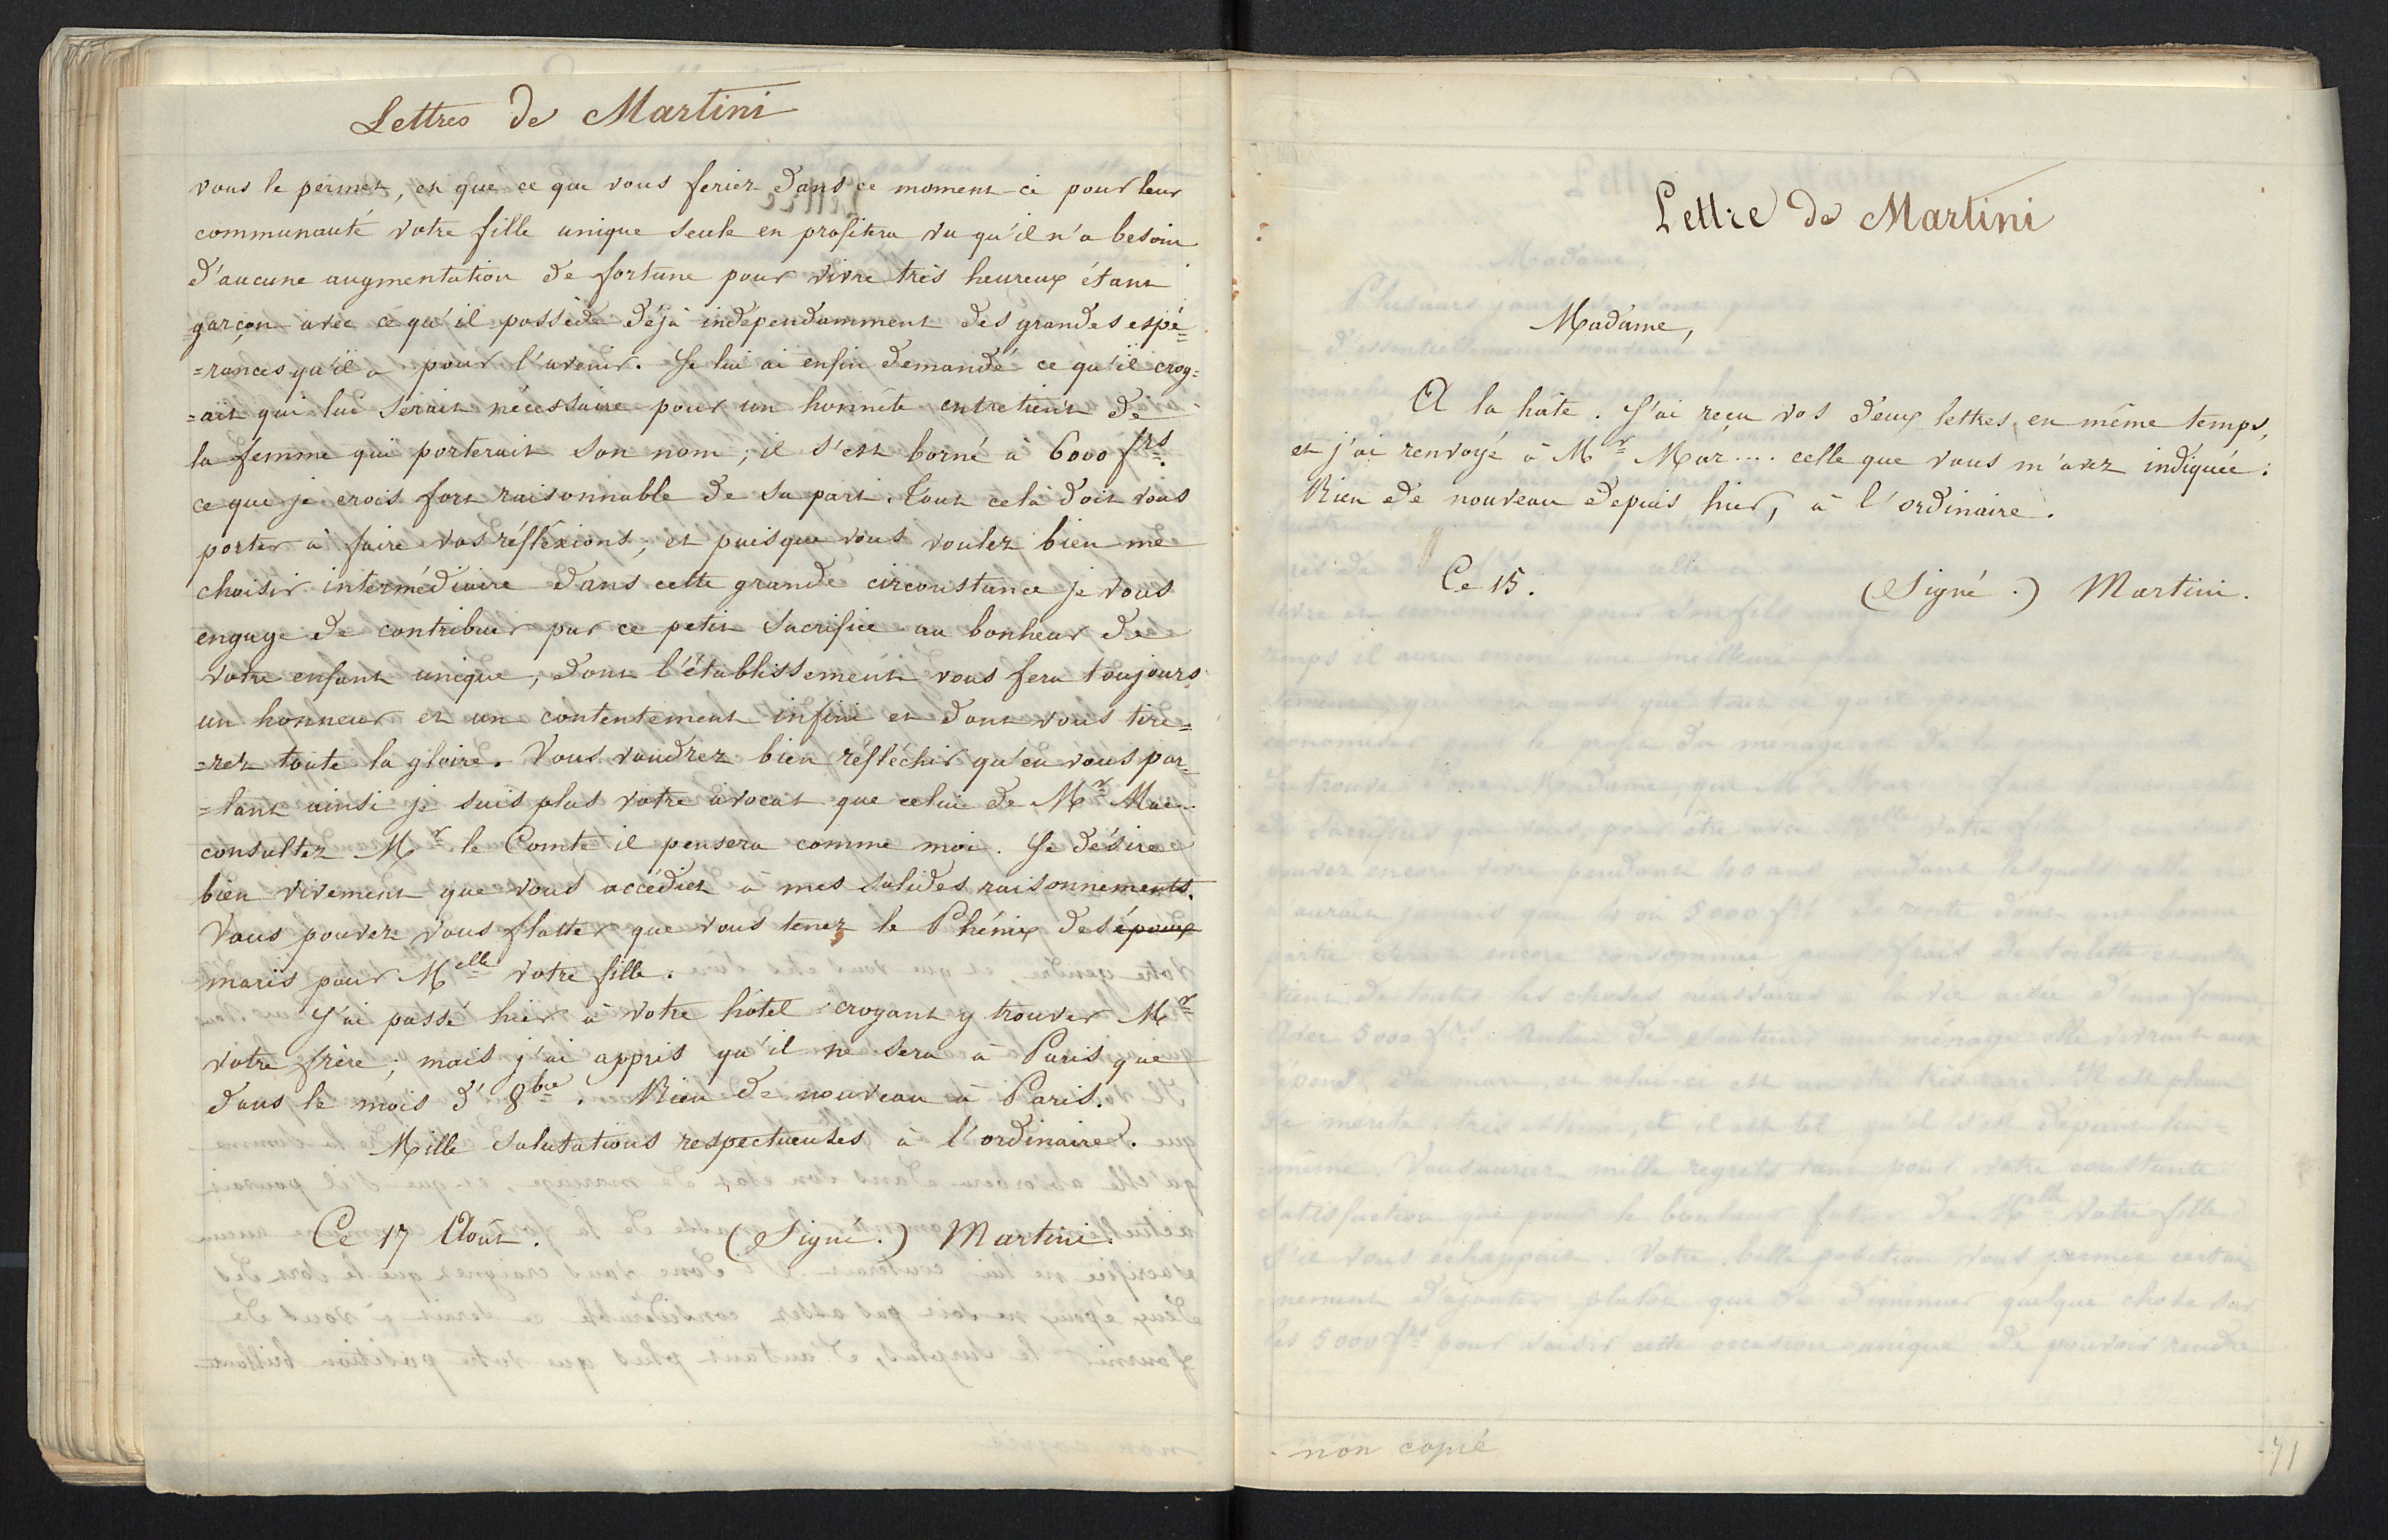 Lettres de Martini
vous le permet, et que ce que vous feriez dans ce moment-ci pour leur
communauté votre fille unique seule en profitera vu qu'il n'a besoin
d'aucune augmentation de fortune pour vivre très heureux étant
garçon avec ce qu'il possède déjà indépendamment des grandes espé=
=rances qu'il a pour l'avenir. Je lui ai enfin demandé ce qu'il croy=
=ait qui lui serait nécessaire pour un honnête entretient de
la femme qui porterait son nom; il s'est borné à 6000 frs.
ce que je crois fort raisonnable de sa part. Tout celà doit vous
porter à faire vos réfléxions; et puisque vous voulez bien me
choisir intermédiaire dans cette grande circonstance je vous
engage de contribuer par ce petit sacrifice au bonheur de
votre enfant unique, dont l'établissement vous fera toujours
un honneur et un contentement infini et dont vous tire=
=rez toute la gloire. Vous voudrez bien réfléchir qu'en vous par=
=lant ainsi je suis plus votre avocat que celui de Mr Mar..
consultez Mr le Comte il pensera comme moi. Je désire
bien vivement que vous accédiez à mes solides raisonnements.
Vous pouvez vous flatter que vous tenez le Phénix des époux
maris pour Melle votre fille.
J'ai passé hier à votre hôtel croyant y trouver Mr
votre frère; mais j'ai appris qu'il ne sera à Paris que
dans le mois d'8bre. Rien de nouveau à Paris.
Mille salutations respectueuses à l'ordinaire.
Ce 17 Août. (Signé.) Martini.
Lettre de Martini
Madame,
A la hâte. J'ai reçu vos deux lettres en même temps,
et j'ai renvoyé à Mr Mar.... celle que vous m'avez indiquée.
Rien de nouveau depuis hier, à l'ordinaire.
Ce 15. (Signé.) Martini.
non copié
71